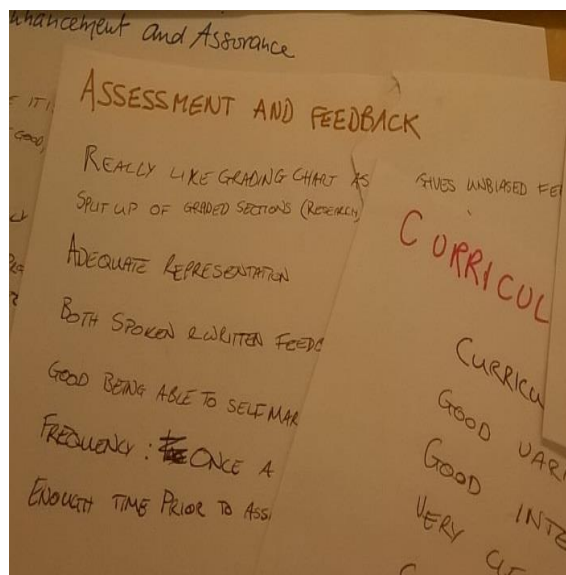 and Assurance
ASSESSMENT AND FEEDBACK
REALLY LIKE GRADING CHART AS GIVES UNBIASED
SPLIT UP OF GRADED SECTIONS (RESEARCH)
ADEQUATE REPRESENTATION
BOTH SPOKEN & WRITTEN
GOOD BEING ABLE TO SELF MAR
FREQUENCY: ONCE A
ENOUGH TIME PRIOR TO ASS
CURRICUL
CURRICU
GOOD VARI
GOOD INTE
VERY